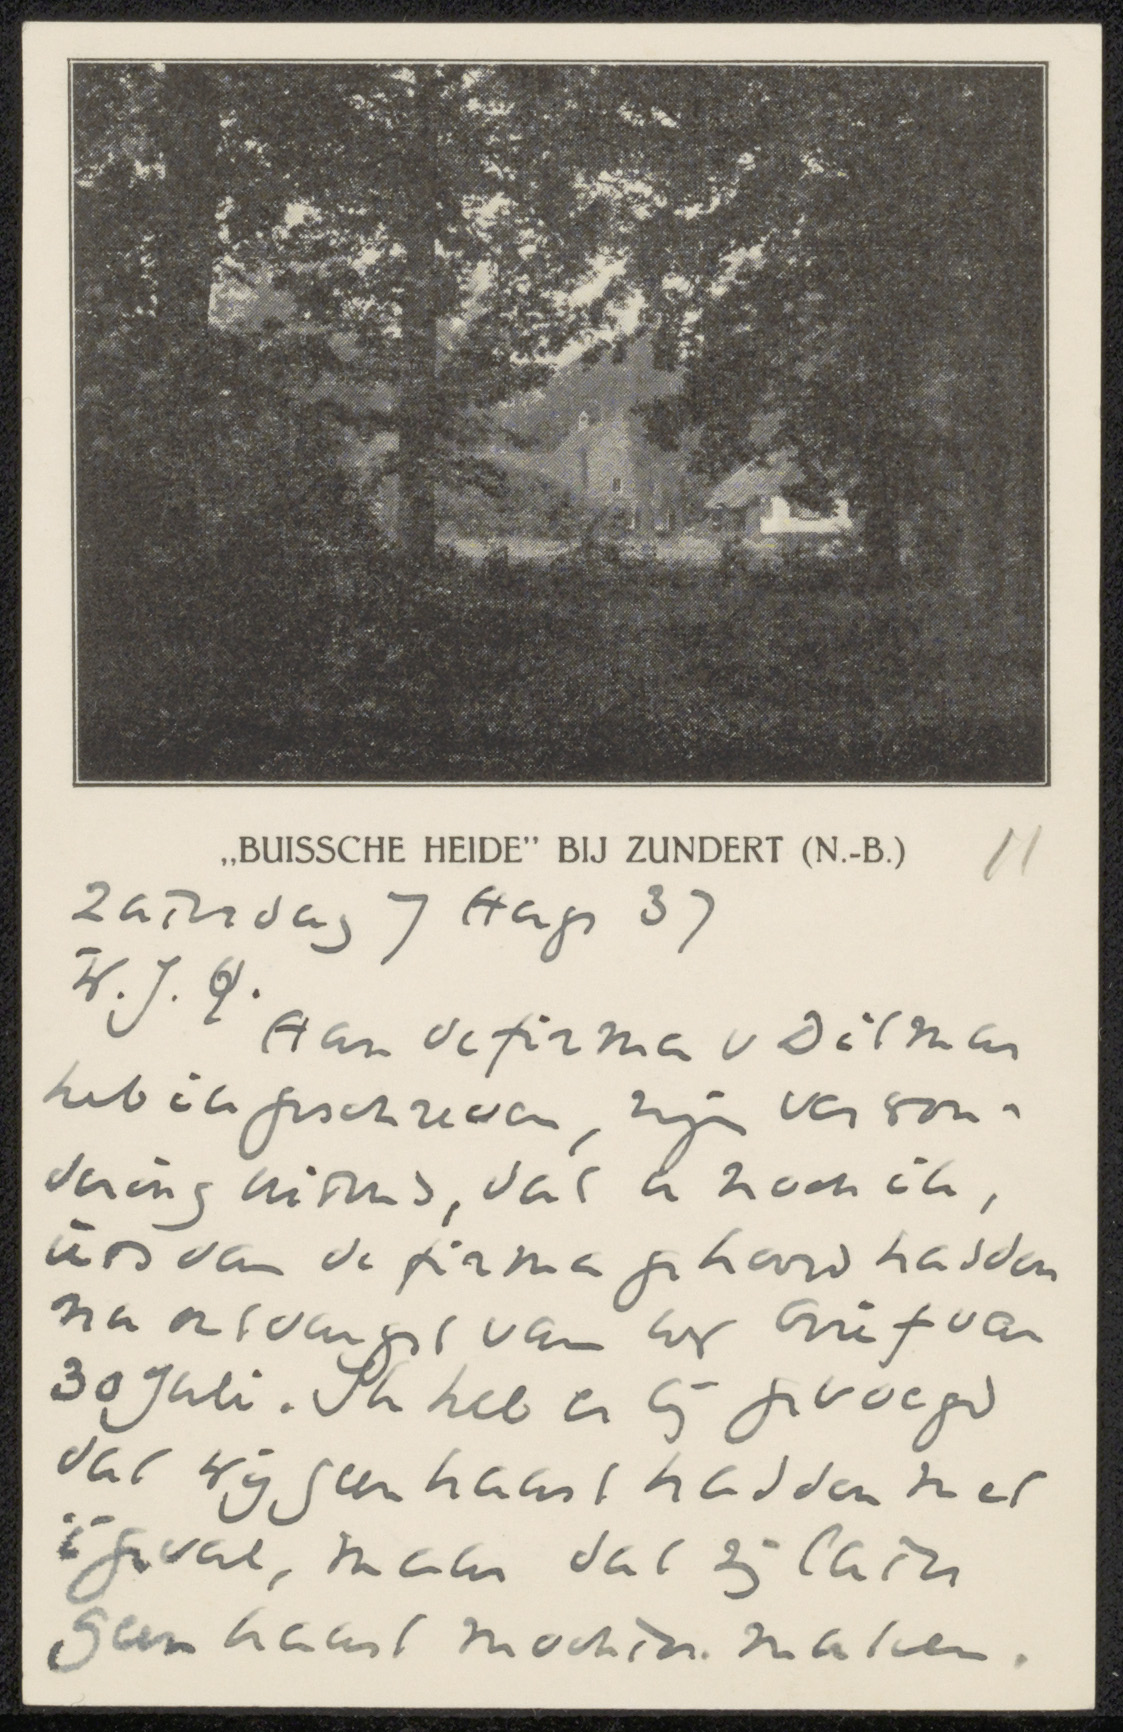 „BUISSCHE HEIDE” BIJ ZUNDERT (N.-B.)
11
Zaterdag 7 Aug 37
W. J. Q.
Aan de firma v Dilmar
heb ik geschreven, mijn verwon-
dering uitend, dat u noch ik,
iets van de firma gehoord hadden
na ontvangst van uw brief van
30 Juli. Ik heb er bij gevoegd
dat wij geen haast hadden met
't geval, maar dat zij later
geen haast mochten maken.